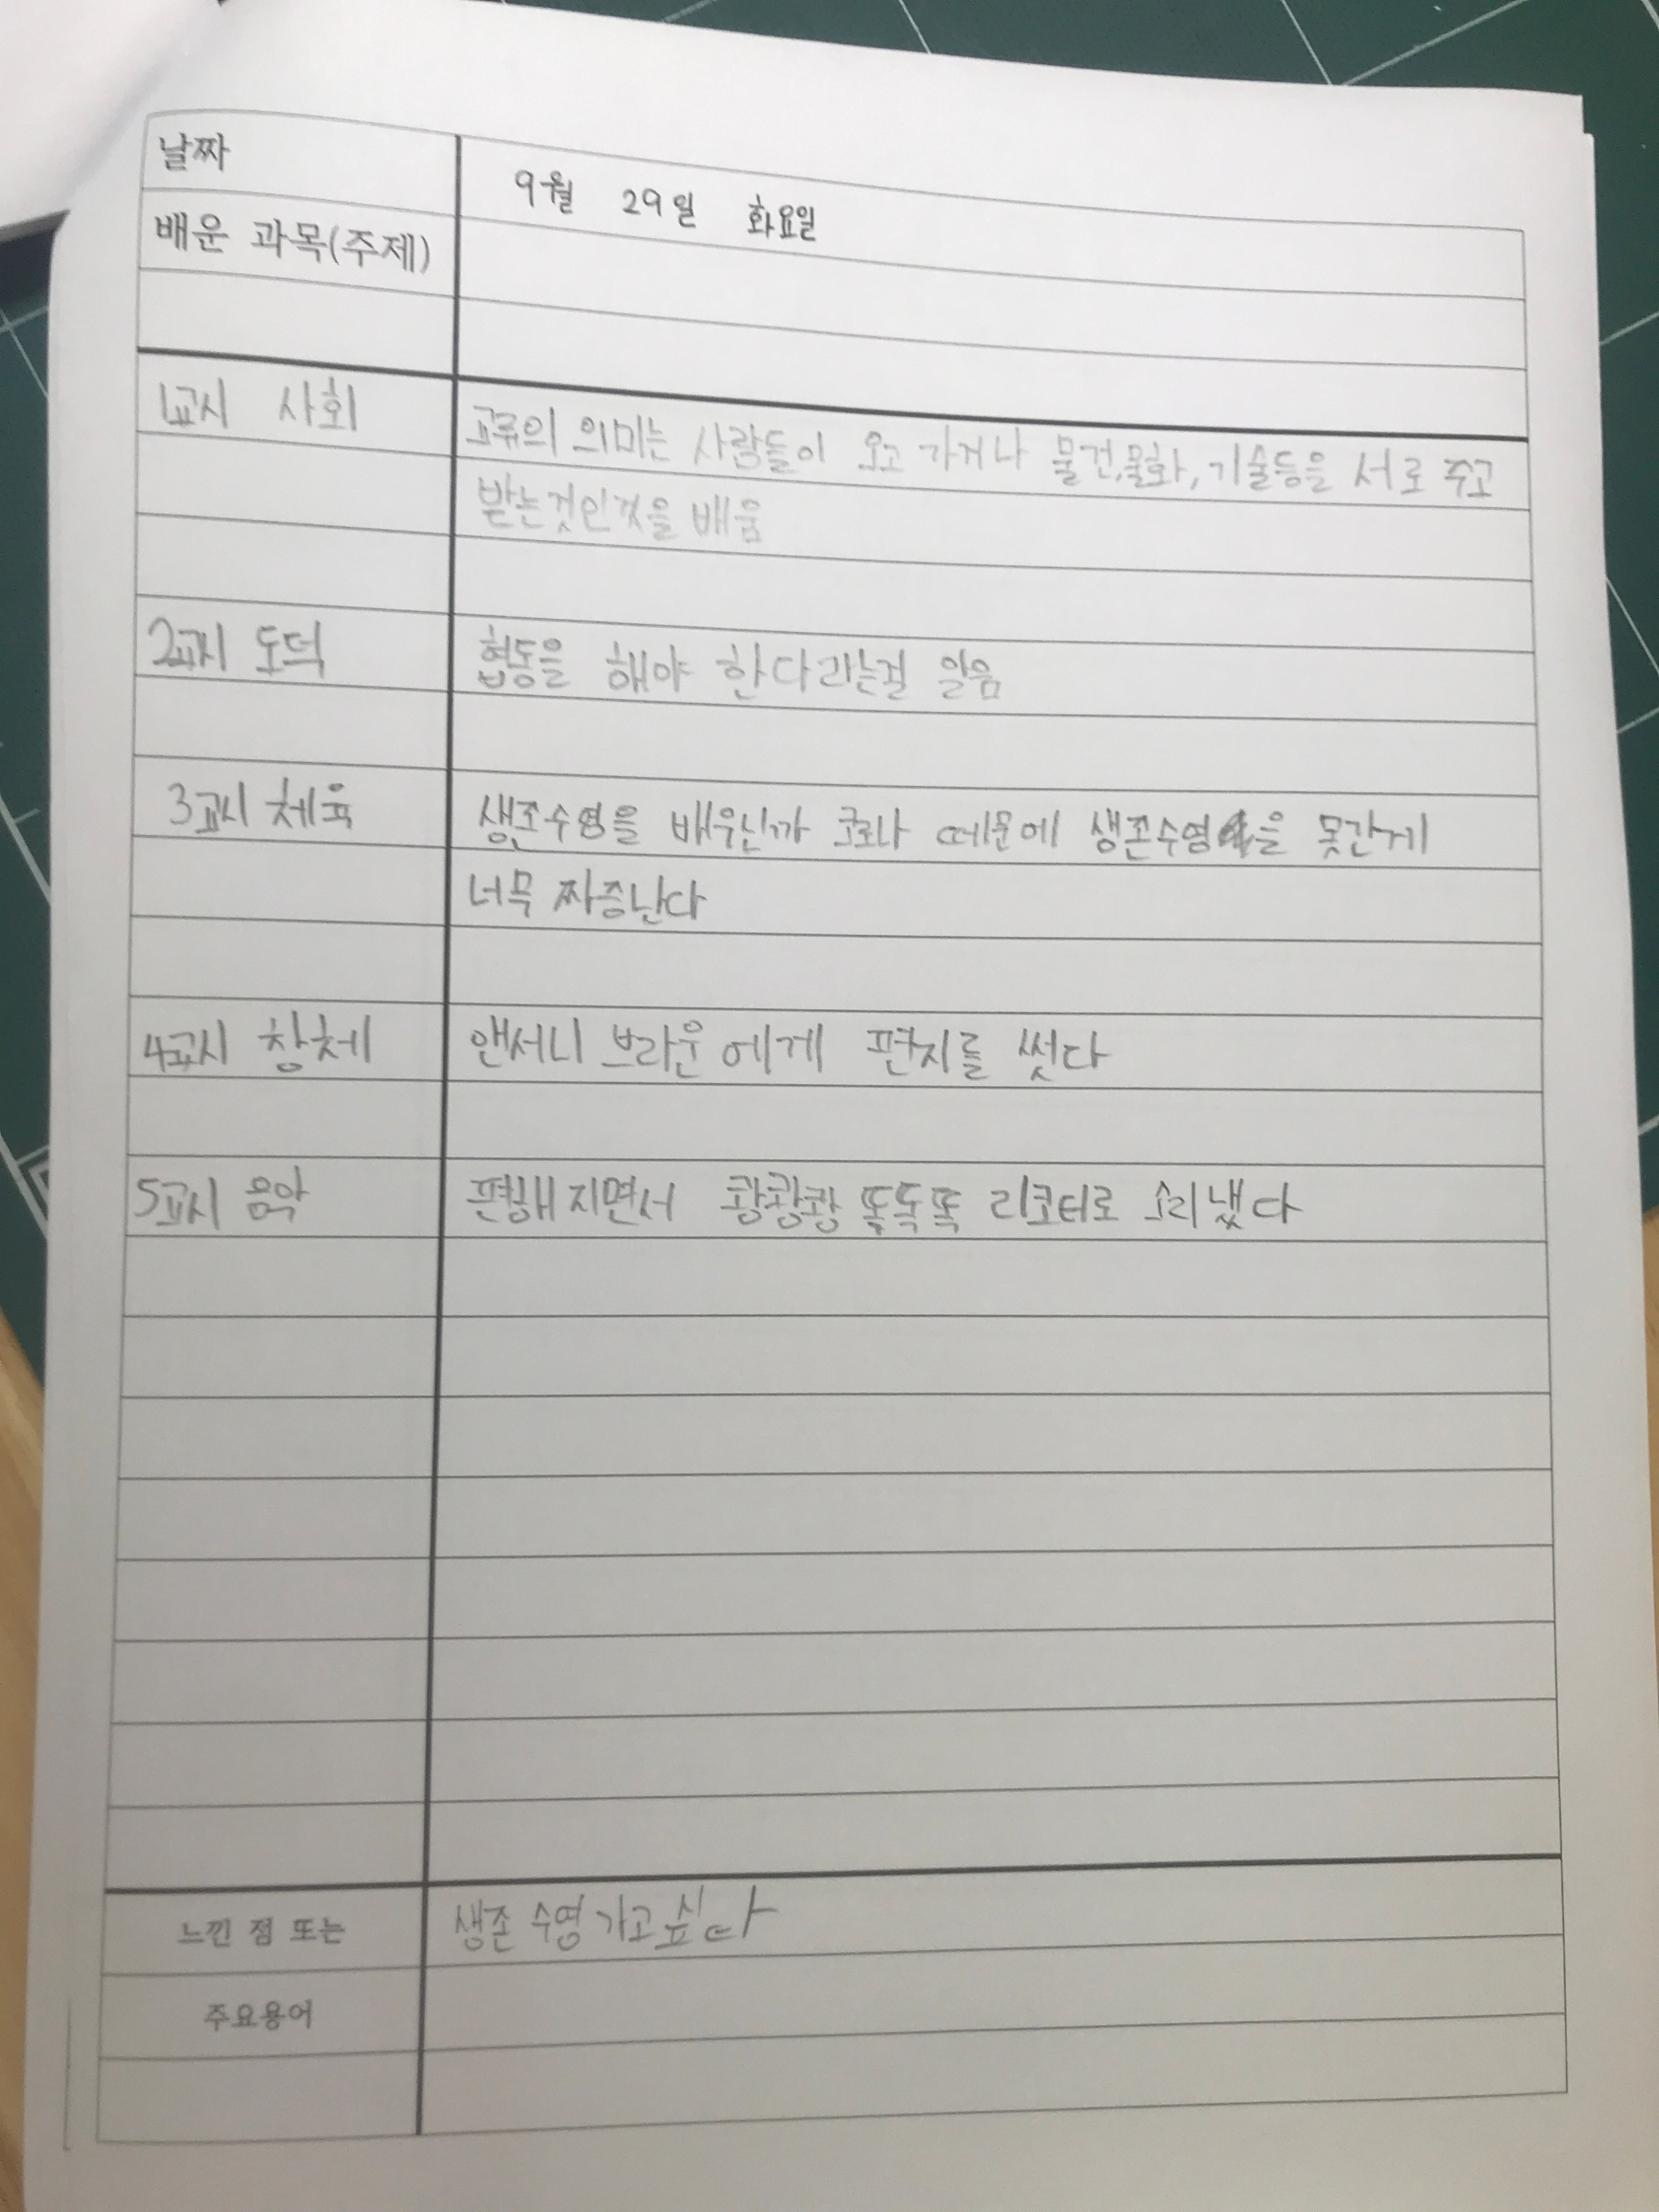 날짜
9월 29일 화요일
배운 과목(주제)
1교시 사회 교류의 의미는 사람들이 오고 가거나 물건,물화,기술등을 서로 주고
받는것인것을 배움
2교시 도덕 협동을 해야 한다라는걸 알음
3교시 체육 생존수영을 배우닌까 코로나 때문에 생존수영을 못간게
너무 짜증난다
4교시 창체 앤서니 브라운에게 편지를 썻다
5교시 음악 지면서 쾅쾅쾅 똑똑똑 리코터로 소리냈다
느낀 점 또는 생존 수영 가고 싶다
주요용어